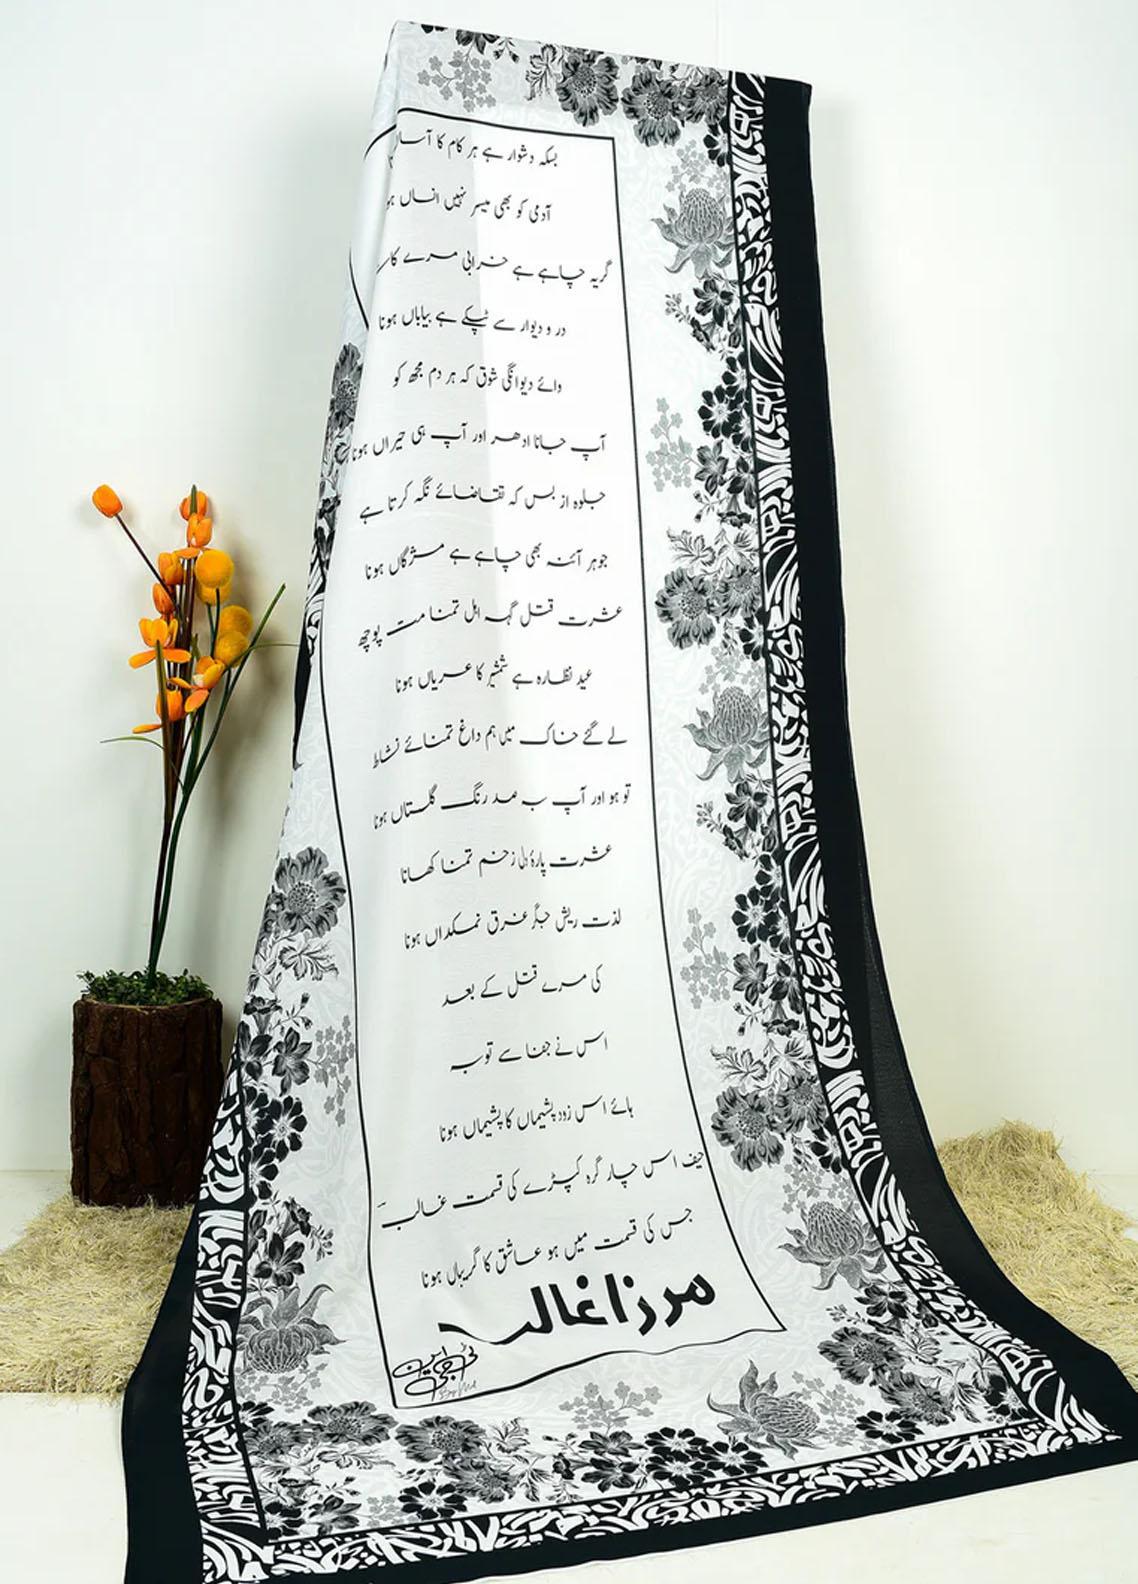 بسکہ دشوار ہے ہر کام کا آساں
آدمی کو بھی میسر نہیں انساں ہو
گریہ چاہے ہے خرابی مرے کا
در و دیوار سے ٹپکے ہے بیاباں ہونا
وائے دیوانگی شوق کہ ہر دم مجھ کو
آپ جانا ادھر اور آپ ہی حیراں ہونا
جلوہ از بس کہ تقاضائے نگہ کرتا ہے
جوہر آئنہ بھی چاہے ہے مژگاں ہونا
عشرت قتل گہہ اہل تمنا مت پوچھ
عید نظارہ ہے شمشیر کا عریاں ہونا
لے گئے خاک میں ہم داغ تمنائے نشاط
تو ہو اور آپ بہ صد رنگ گلستاں ہونا
عشرت پارۂ دل زخم تمنا کھانا
لذت ریش جگر غرق نمکداں ہونا
کی مرے قتل کے بعد
اس نے جفا سے توبہ
ہائے اس زود پشیماں کا پشیماں ہونا
حیف اس چار گرہ کپڑے کی قسمت غالبؔ
جس کی قسمت میں ہو عاشق کا گریباں ہونا
مرزا غالب